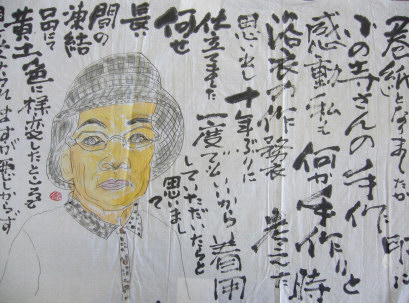 巻紙となりましたが
小の寺さんの手作り印に
感動 私も何か手作りと
考えた時
浴衣の作務衣
思い出し 十年ぶりに
仕立てました 一度でいいから着用
していただいたらと
思いまして
何せ
長い
間の
凍結
品にて
黄土色に様変したところ